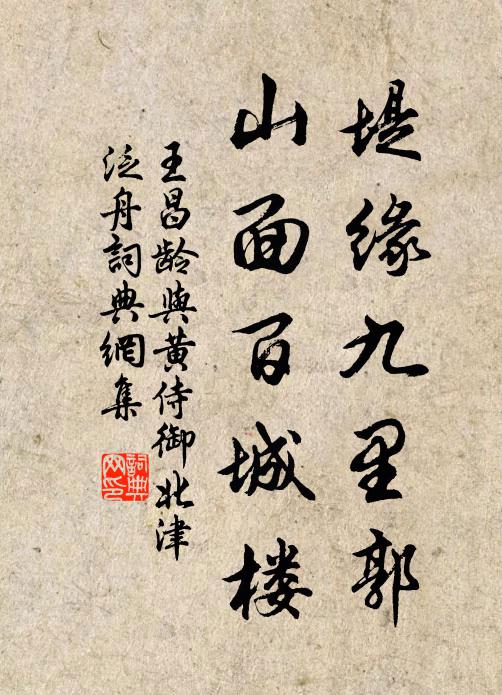 堤缘九里郭
山面百城楼
王昌龄與黄侍御北津
泛舟詞典網集
詞典網印